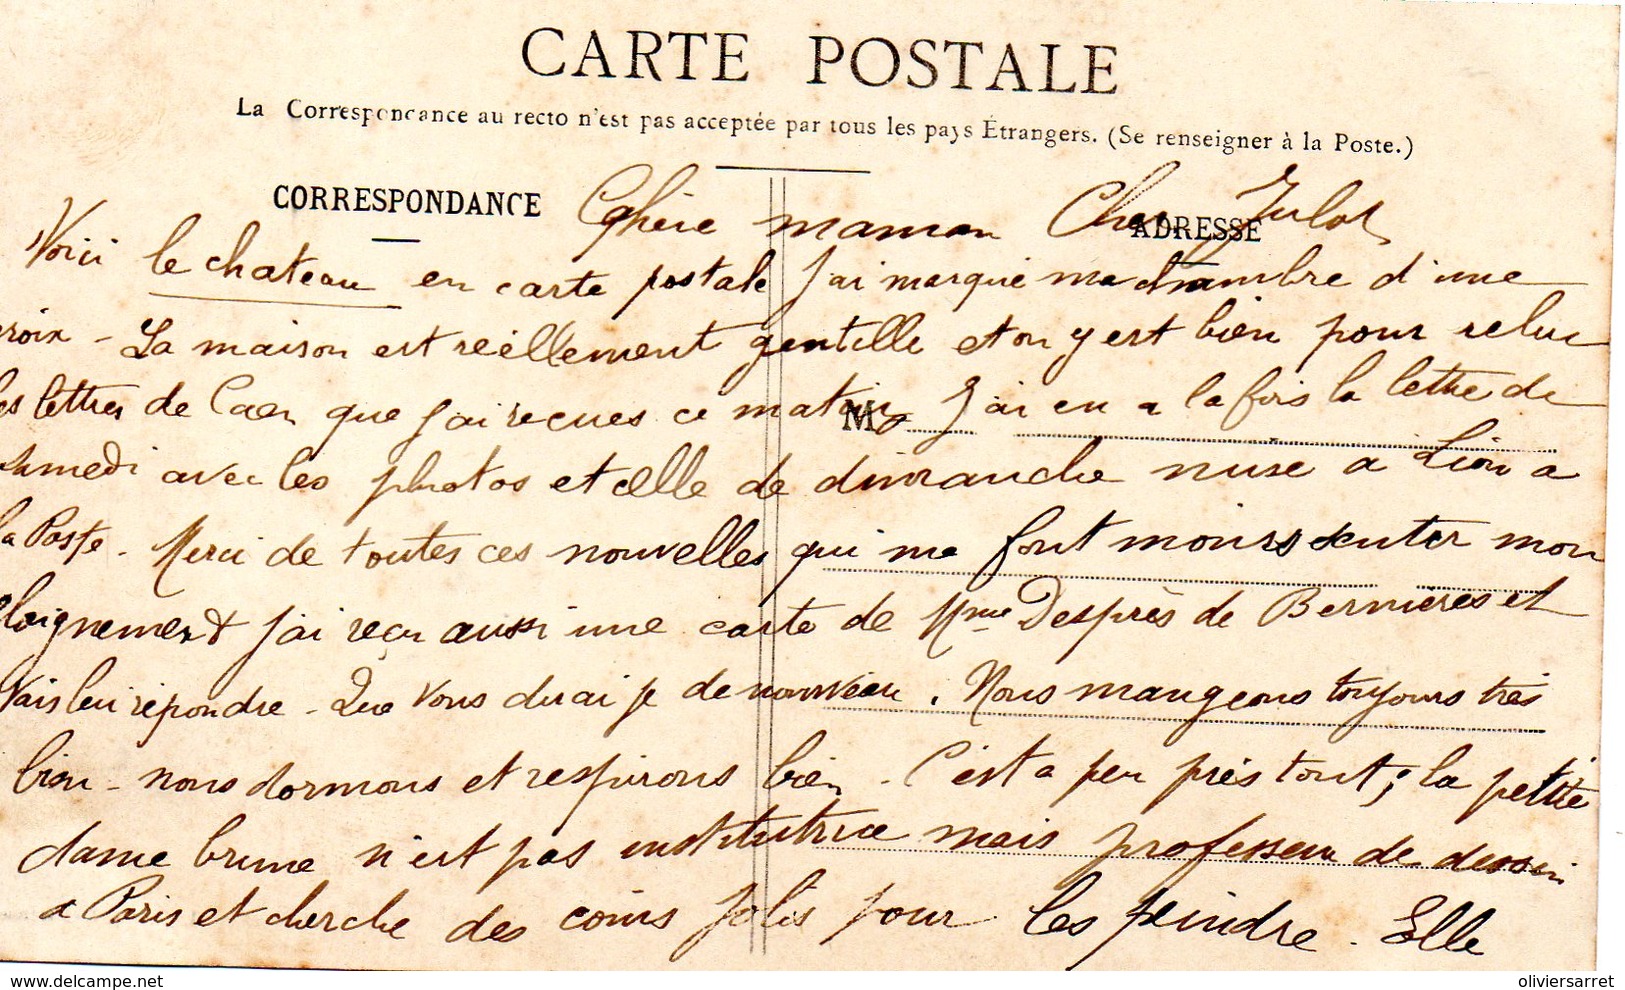 CARTE POSTALE
La Correspondance au recto n'est pas acceptée par tous les pays Étrangers. (Se renseigner à la Poste.)
CORRESPONDANCE
ADRESSE
Chère maman Cher Julot
Voici le chateau en carte postale J'ai marqué ma chambre d'une
croix - La maison est réellement gentille et on y est bien pour relire
les lettres de Caen que j'ai recues ce matin. J'ai eu a la fois la lettre de
samedi avec les photos et celle de dimanche mise a Lion a
la Poste. Merci de toutes ces nouvelles qui me font moins sentir mon
eloignement J'ai reçu aussi une carte de Mme Desprès de Bernières et
vais lui répondre - Que vous dirai je de nouveau. Nous mangeons toujours très
bien - nous dormons et respirons bien - C'est a peu près tout; la petite
dame brune n'est pas institutrice mais professeur de dessin
a Paris et cherche des coins jolis pour les peindre - Elle
M
delcampe.net
oliviersarret